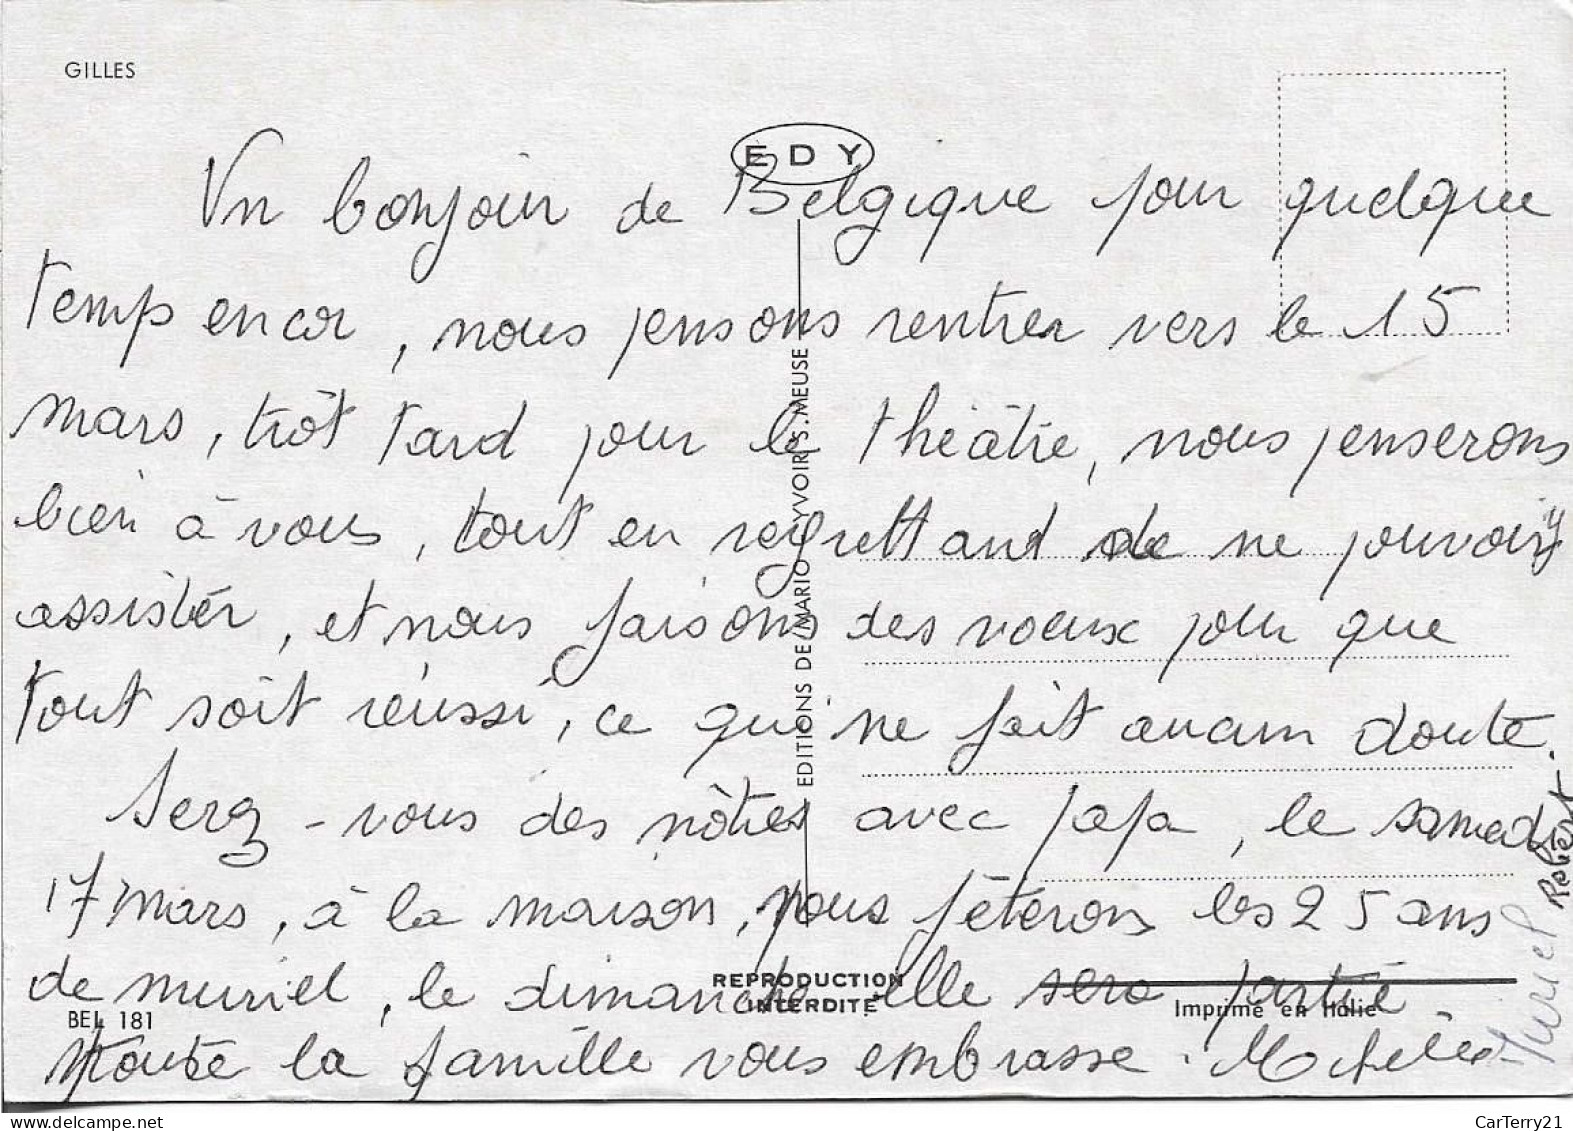 GILLES
EDY
Un bonjour de Belgique pour quelque
temp encor, nous pensons rentrer vers le 15
mars, trôt tard pour le théâtre, nous penserons
bien à vous, tout en regrettand de ne pouvoir y
assistér, et nous faisons des voeux pour que
tout soit réussi, ce qui ne fait aucun doute.
Serez-vous des nôtres avec papa, le samedi
17 mars, à la maison, nous fêterons les 25 ans
de muriel, le dimanche elle sera partie
toute la famille vous embrasse.
Robert
Muriel
EDITIONS DE MARIO YVOIR S. MEUSE
REPRODUCTION
INTERDITE
Imprimé en Italie
BEL 181
CarTerry21